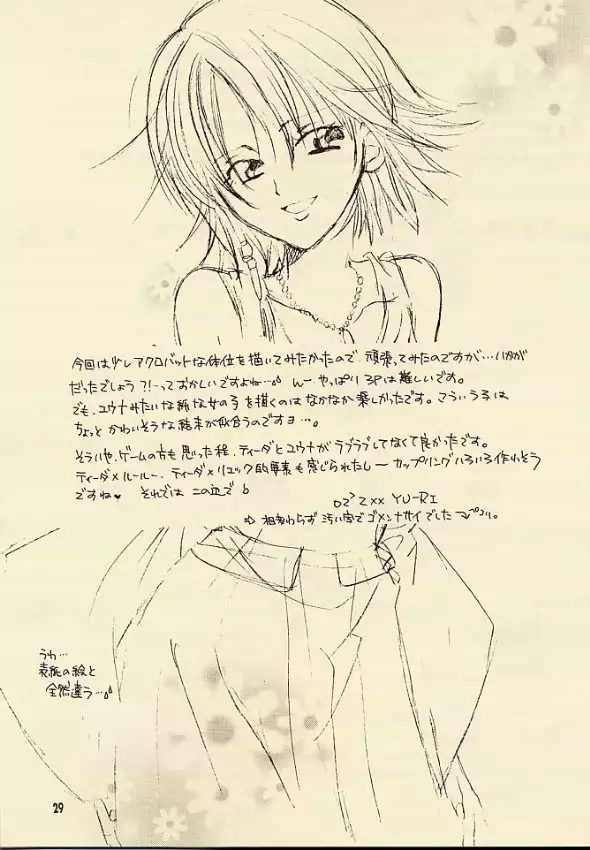 今回は少しアクロバットな体位を描いてみたかったので、頑張ってみたのですが…いかが
だったでしょう?!…っておかしいですよね… んー やっぱり 3Pは難しいです。
でも、ユウナみたいな 女の子を描くのは なかなか楽しかったです。
ちょっと かわいそうな 結末が似合うのですヨ…。
そういや、ゲームの方も 思った程、ティーダとユウナが ラブラブしてなくて良かったです。
ティーダ×ルールー、ティーダ×リュック的要素も感じられたし〜 カップリングいろいろ作れそう
ですね♥ それでは この辺で
YU-RI
相変わらず 汚い字で ゴメンナサイでした
うわ…
表紙の絵と
全然違う…
29